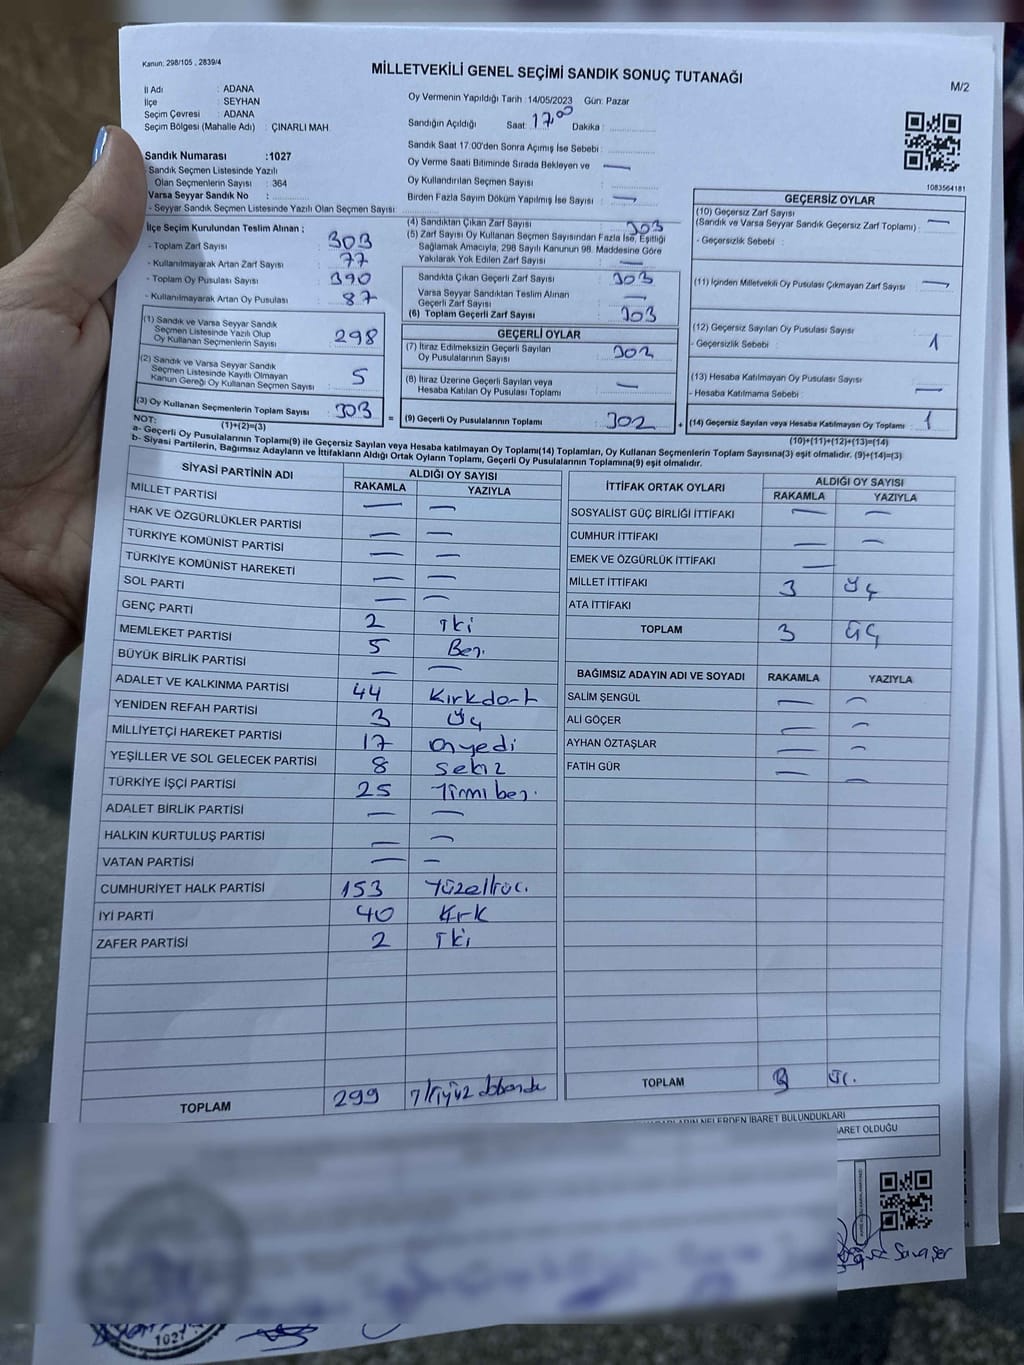 Kanun: 298/105 , 2839/4
MİLLETVEKİLİ GENEL SEÇİMİ SANDIK SONUÇ TUTANAĞI
M/2
İl Adı : ADANA
İlçe : SEYHAN
Seçim Çevresi : ADANA
Seçim Bölgesi (Mahalle Adı) : ÇINARLI MAH
Oy Vermenin Yapıldığı Tarih :14/05/2023 Gün: Pazar
Sandığın Açıldığı Saat: 17.00 Dakika :
Sandık Saat 17.00'den Sonra Açımış İse Sebebi :
Oy Verme Saati Bitiminde Sırada Bekleyen ve —
Oy Kullandırılan Seçmen Sayısı
Birden Fazla Sayım Döküm Yapılmış İse Sayısı : —
1083564181
Sandık Numarası :1027
Sandık Seçmen Listesinde Yazılı
Olan Seçmenlerin Sayısı : 364
Varsa Seyyar Sandık No :
- Seyyar Sandık Seçmen Listesinde Yazılı Olan Seçmen Sayısı
İlçe Seçim Kurulundan Teslim Alınan ;
- Toplam Zarf Sayısı : 303
- Kullanılmayarak Artan Zarf Sayısı : 77
- Toplam Oy Pusulası Sayısı : 390
- Kullanılmayarak Artan Oy Pusulası : 87
(1) Sandık ve Varsa Seyyar Sandık
Seçmen Listesinde Yazılı Olup
Oy Kullanan Seçmenlerin Sayısı : 298
(2) Sandık ve Varsa Seyyar Sandık
Seçmen Listesinde Kayıtlı Olmayan
Kanun Gereği Oy Kullanan Seçmen Sayısı : 5
(3) Oy Kullanan Seçmenlerin Toplam Sayısı : 303
(1)+(2)=(3)
(4) Sandıktan Çıkan Zarf Sayısı : 303
(5) Zarf Sayısı Oy Kullanan Seçmen Sayısından Fazla İse, Eşitliği
Sağlamak Amacıyla, 298 Sayılı Kanunun 98. Maddesine Göre
Yakılarak Yok Edilen Zarf Sayısı : —
Sandıkta Çıkan Geçerli Zarf Sayısı : 303
Varsa Seyyar Sandıktan Teslim Alınan
Geçerli Zarf Sayısı : —
(6) Toplam Geçerli Zarf Sayısı : 303
GEÇERLİ OYLAR
(7) İtiraz Edilmeksizin Geçerli Sayılan
Oy Pusulalarının Sayısı : 302
(8) İtiraz Üzerine Geçerli Sayılan veya
Hesaba Katılan Oy Pusulası Toplamı : —
= (9) Geçerli Oy Pusulalarının Toplamı : 302 +
GEÇERSİZ OYLAR
(10) Geçersiz Zarf Sayısı
(Sandık ve Varsa Seyyar Sandık Geçersiz Zarf Toplamı) : —
- Geçersizlik Sebebi :
(11) İçinden Milletvekili Oy Pusulası Çıkmayan Zarf Sayısı : —
(12) Geçersiz Sayılan Oy Pusulası Sayısı : 1
- Geçersizlik Sebebi :
(13) Hesaba Katılmayan Oy Pusulası Sayısı : —
- Hesaba Katılmama Sebebi :
(14) Geçersiz Sayılan veya Hesaba Katılmayan Oy Toplamı : 1
(10)+(11)+(12)+(13)=(14)
NOT:
a- Geçerli Oy Pusulalarının Toplamı(9) ile Geçersiz Sayılan veya Hesaba katılmayan Oy Toplamı(14) Toplamları, Oy Kullanan Seçmenlerin Toplam Sayısına(3) eşit olmalıdır. (9)+(14)=(3)
b- Siyasi Partilerin, Bağımsız Adayların ve İttifakların Aldığı Ortak Oyların Toplamı, Geçerli Oy Pusulalarının Toplamına(9) eşit olmalıdır.
SİYASİ PARTİNİN ADI ALDIĞI OY SAYISI
RAKAMLA YAZIYLA
MİLLET PARTİSİ — —
HAK VE ÖZGÜRLÜKLER PARTİSİ — —
TÜRKİYE KOMÜNİST PARTİSİ — —
TÜRKİYE KOMÜNİST HAREKETİ — —
SOL PARTİ — —
GENÇ PARTİ 2 iki
MEMLEKET PARTİSİ 5 Beş.
BÜYÜK BİRLİK PARTİSİ — —
ADALET VE KALKINMA PARTİSİ 44 Kırkdört
YENİDEN REFAH PARTİSİ 3 Üç
MİLLİYETÇİ HAREKET PARTİSİ 17 Onyedi
YEŞİLLER VE SOL GELECEK PARTİSİ 8 Sekiz
TÜRKİYE İŞÇİ PARTİSİ 25 Yirmibeş.
ADALET BİRLİK PARTİSİ — —
HALKIN KURTULUŞ PARTİSİ — —
VATAN PARTİSİ — —
CUMHURİYET HALK PARTİSİ 153 Yüzelliüç.
İYİ PARTİ 40 Kırk
ZAFER PARTİSİ 2 iki
TOPLAM 299
İTTİFAK ORTAK OYLARI ALDIĞI OY SAYISI
RAKAMLA YAZIYLA
SOSYALİST GÜÇ BİRLİĞİ İTTİFAKI — —
CUMHUR İTTİFAKI — —
EMEK VE ÖZGÜRLÜK İTTİFAKI —
MİLLET İTTİFAKI 3 Üç
ATA İTTİFAKI
TOPLAM 3 Üç
BAĞIMSIZ ADAYIN ADI VE SOYADI RAKAMLA YAZIYLA
SALİM ŞENGÜL — —
ALİ GÖÇER — —
AYHAN ÖZTAŞLAR — —
FATİH GÜR — —
TOPLAM 3 Üç.
NELERDEN İBARET BULUNDUKLARI
OLDUĞU
Savaşer
1027